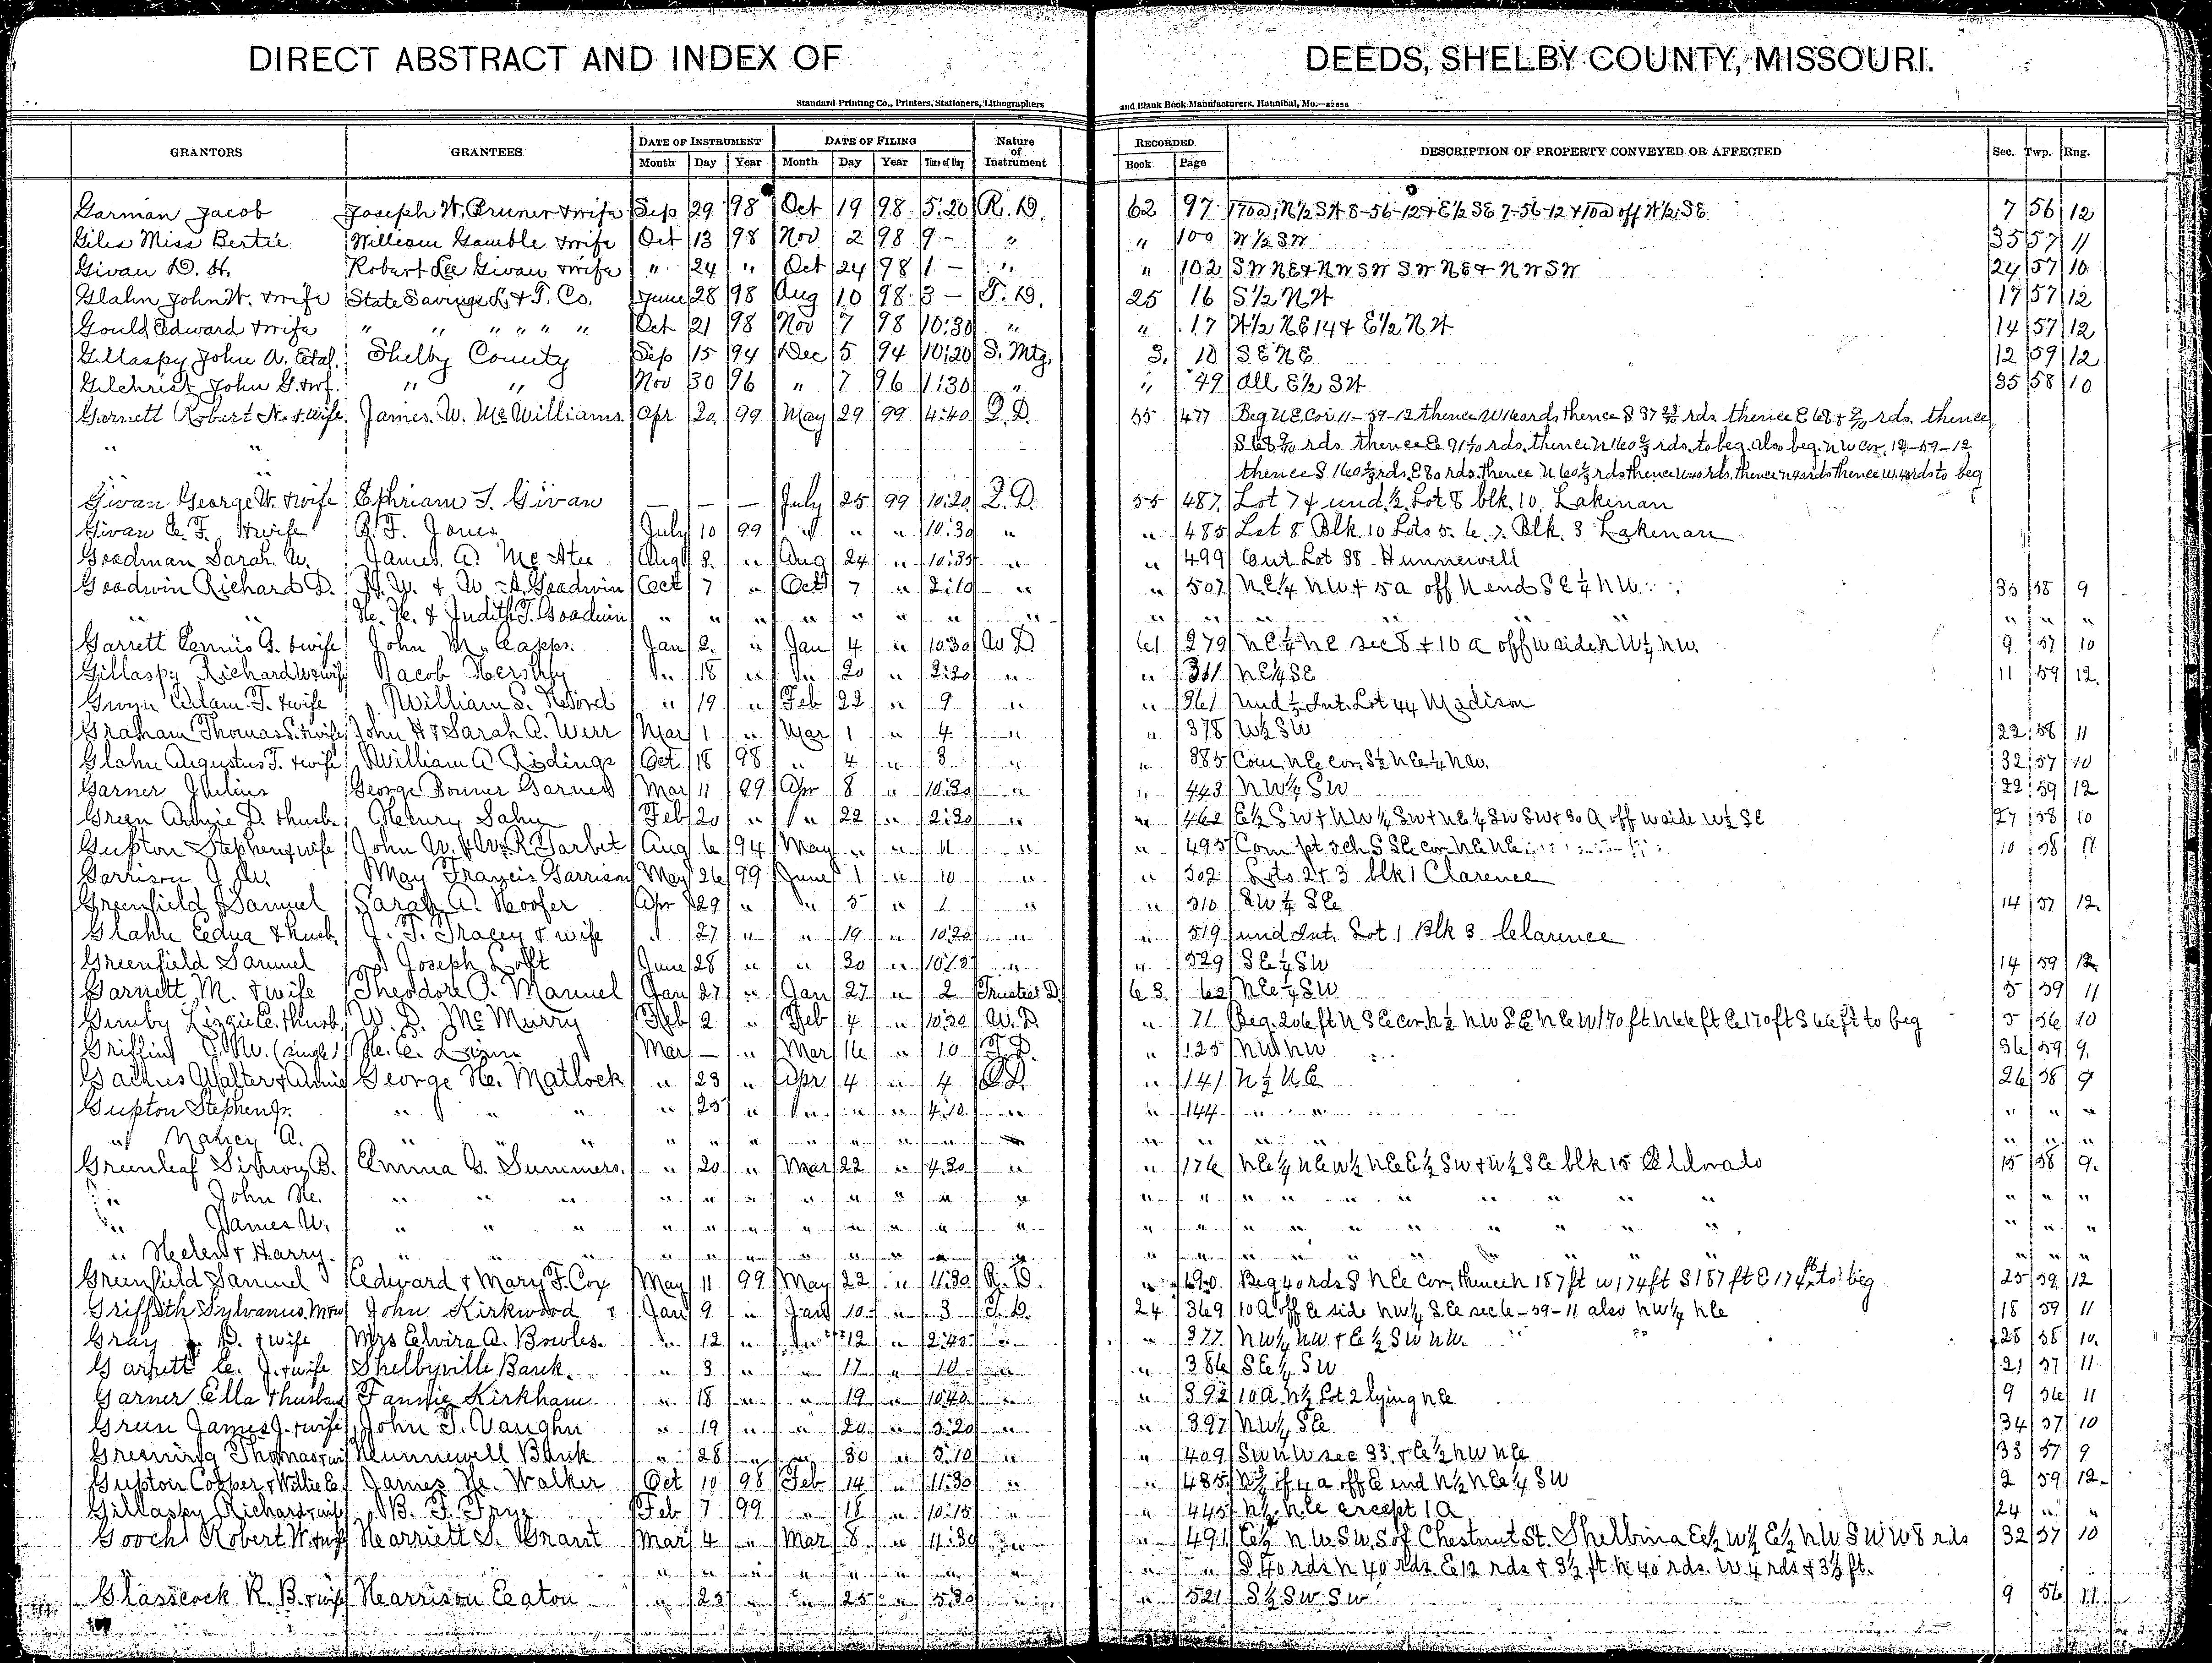 DIRECT ABSTRACT AND INDEX OF DEEDS, SHELBY COUNTY, MISSOURI.
Standard Printing Co., Printers, Stationers, Lithographers and Blank Book Manufacturers, Hannibal, Mo.
GRANTORS GRANTEES DATE OF INSTRUMENT DATE OF FILING Nature of Instrument RECORDED DESCRIPTION OF PROPERTY CONVEYED OR AFFECTED Sec. Twp. Rng.
Month Day Year Month Day Year Time of Day Book Page
Garman Jacob Joseph W. Bruner & wife Sep 29 98 Oct 19 98 5:20 R. D. 62 97 170a; N½ SW 8-56-12 & E½ SE 7-56-12 & 10a off W½ SE 7 56 12
Giles Miss Bertie William Gamble & wife Oct 13 98 Nov 2 98 9 - " " 100 W ½ SW 35 57 11
Givan D. H. Robert Lee Givan & wife " 24 " Oct 24 98 1 - " " 102 SW NE & NW SW SW NE & NW SW 24 57 10
Glahn John W. & wife State Savings L & T. Co. June 28 98 Aug 10 98 3 - T. D. 25 16 S ½ NW 17 57 12
Gould Edward & wife " " " " " Oct 21 98 Nov 7 98 10:30 " " 17 W½ NE 14 & E½ NW 14 57 12
Gillaspy John A. Etal. Shelby County Sep 15 94 Dec 5 94 10:20 S. Mtg. 3. 10 SE NE 12 59 12
Gilchrist John G. & wf. " " Nov 30 96 " 7 96 1:30 " " 49 all E½ SW 35 58 10
Garnett Robert N. & wife James. W. McWilliams. Apr 20. 99 May 29 99 4:40 Q. D. 55 477 Beg N.E. Cor 11-59-12 thence W 160 rds thence S 37 rds. thence E 68 rds. thence
" " S 68 rds thence E 91 rds. thence N 160 rds. to beg. also beg. NW Cor. 12-59-12
" thence S 160 rds. E 80 rds. thence N 160 rds thence W 40 rds. thence N 40 rds thence W. 40 rds to beg
Givan George W. & wife Ephriam T. Givan — — — July 25 99 10:20 Q. D. 55 487. Lot 7 & und. ½ Lot 8 blk. 10. Lakenan
Givan E. F. & wife B. F. Jones July 10 99 " " " 10:30 " " 485 Lot 8 Blk. 10 Lots 5. 6. 7. Blk. 3 Lakenan
Goodman Sarah W. James. A. McAtee Aug 8. " Aug 24 " 10:35 " " 499 Out Lot 38 Hunnewell
Goodwin Richard D. W. & W. A. Goodwin Oct 7 " Oct 7 " 2:10 " " 507 N.E.¼ NW & 5a off N end SE ¼ NW. 33 58 9
" " H. H. & Judith T. Goodwin " " " " " " " " " " " " " "
Garrett Lennis G. & wife John M. Capps. Jan 2. " Jan 4 " 10:30 W D 61 279 NE¼ NE sec 8 & 10 a off W side N W¼ NW. 9 57 10
Gillaspy Richard & wife Jacob Hershby " 18 " " 20 " 2:20 " " 311 NE¼ SE 11 59 12.
Gwyn Adam T. & wife William S. " 19 " Feb 22 " 9 " " 361 Und ½ Int. Lot 44 Madison
Graham Thomas S. & wife John H & Sarah A. Werr Mar 1 " Mar 1 " 4 " " 378 W½ SW 22 58 11
Glahn Augustus T. & wife William A Ridings Oct 18 98 " 4 " 3 " " 385 Com. NE cor. S½ NE¼ NW. 32 57 10
Garner Julius George Bonner Garner Mar 11 99 Apr 8 " 10:30 " " 443 NW¼ SW 22 59 12
Green Annie D. & husb. Henry Sahy Feb 20 " " 22 " 2:30 " " 462 E½ SW & NW ¼ SW & NE ¼ SW SW & 30 A off W side W½ SE 27 58 10
Gupton Stephen & wife John W. & W. R. Tarbit Aug 6 94 May " " 11 " " 495 Com pt 3 ch S SE cor. NE NE 10 58 11
Garrison J. W. May Francis Garrison May 26 99 June 1 " 10 " " 302 Lots 2 & 3 blk 1 Clarence
Greenfield Samuel Sarah A. Hoofer Apr 29 " " 5 " 1 " " 310 SW ¼ SE 14 57 12.
Glahn Edna & husb. J. T. Tracey & wife " 27 " " 19 " 10:20 " " 519 und Int. Lot 1 Blk 3 Clarence
Greenfield Samuel Joseph Lofft June 28 " " 30 " " " 529 SE ¼ SW 14 59 12
Garnett M. & wife Theodore P. Manuel Jan 27 " Jan 27 " 2 Trustees D. 63. 62 NE ¼ SW 5 59 11
Gunby Lizzie E. & husb. W. D. McMurry Feb 2 " Feb 4 " 10:30 W. D. " 71 Beg. 206 ft N SE cor. N½ NW SE NE W 170 ft N 66 ft E 170 ft S 66 ft to beg 5 56 10
Griffin J. W. (single) H. E. Mar — " Mar 16 " 10 T. D. " 125 NW NW 36 59 9.
Gaines Walter & Annie George H. Matlock " 23 " Apr 4 " 4 " 141 N ½ N.E 26 58 9
Gupton Stephen Jr. " " " " 25 " " " " 4:10 " " 144 " " " " "
" Nancy A. " " " " " " " " " " " " " " " " "
Greenleaf B. Emma G. Summers. " 20 " Mar 22 " 4:30 " " 176 NE¼ NE W½ NE E½ SW & W½ SE blk 15 Eldorado 15 58 9.
" John H. " " " " " " " " " " " " " " " " " " " " " " "
" James W. " " " " " " " " " " " " " " " " " " " " " " "
" Helen & Harry. " " " " " " " " " " " " " " " " " " " " " " "
Greenfield Samuel Edward & Mary F. Cox May 11 99 May 22 " 11:30 R. D. " 690. Beg 40 rds S NE cor. thence N 187 ft W 174 ft S 187 ft E 174 ft to beg 25 59 12
Griffith Sylvanus. John Kirkwood Jan 9 " Jan 10 " 3 T. D. 24 369 10 A off E side NW¼ SE sec 6-59-11 also NW¼ NE 18 59 11
Gray D. & wife Mrs Elvira A. Bowles. " 12 " " 12 " 2:45 " " 377 NW¼ NW & E ½ SW NW. 28 58 10.
Garnett E. J. & wife Shelbyville Bank. " 3 " " 17 " 10 " " 386 SE¼ SW 21 57 11
Garner Ella & husband Fannie Kirkham " 18 " " 19 " 10:40 " " 392 10 A. N½ Lot 2 lying NE 9 56 11
Green James J. & wife John T. Vaughn " 19 " " 20 " 3:20 " " 397 NW¼ SE 34 57 10
Greening Thomas & wi Hunnewell Bank " 28 " " 30 " 3:10 " " 409 SW NW sec 33. & E½ NW NE 33 57 9
Gupton Copper & Willie E. James H. Walker Oct 10 98 Feb 14 " 11:30 " " 485 if 4 a off E end N½ NE ¼ SW 2 59 12
Gillaspy Richard & wife B. F. Frye Feb 7 99 " 18 " 10:15 " " 445 N½ NE except 1 A 24 " "
Gooch Robert W. & wife Harriett S. Grant Mar 4 " Mar 8 " 11:30 " " 491 E½ NW SW S of Chestnut St. Shelbina E½ W½ E½ NW SW W 8 rds 32 57 10
" " " " " " " " " S 40 rds N 40 rds. E 12 rds & 3½ ft N 40 rds. W. 4 rds & 3½ ft.
Glasscock R. B. & wife Harrison Eaton " 25 " " 25 " 5:30 " " 521 S ½ SW SW 9 56 11